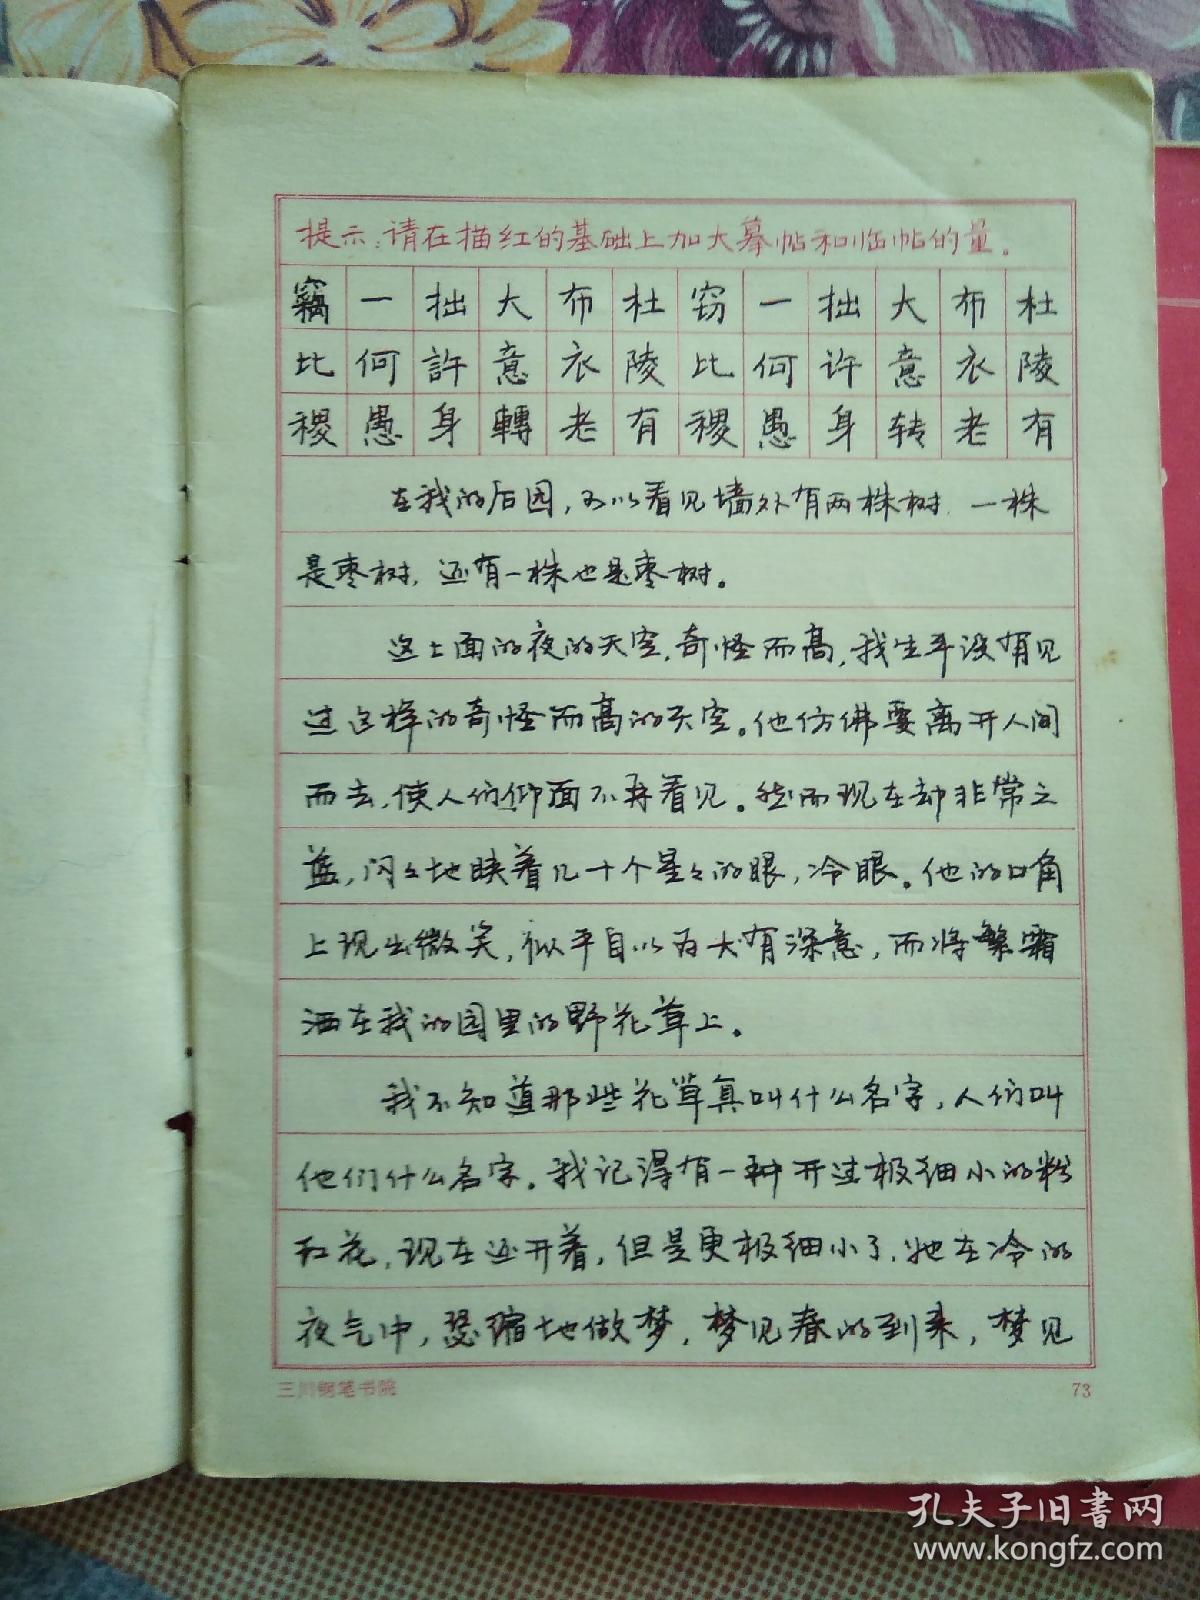 提示:请在描红的基础上加大摹帖和临帖的量。
竊一拙大布杜窃一拙大布杜
比何許意衣陵比何许意衣陵
稷愚身轉老有稷愚身转老有
在我的后园,可以看见墙外有两株树,一株
是枣树,还有一株也是枣树。
这上面的夜的天空,奇怪而高,我生平没有见
过这样的奇怪而高的天空。他仿佛要离开人间
而去,使人们仰面不再看见。然而现在却非常之
蓝,闪々地䀹着几十个星々的眼,冷眼。他的口角
上现出微笑,似乎自以为大有深意,而将繁霜
洒在我的园里的野花草上。
我不知道那些花草真叫什么名字,人们叫
他们什么名字。我记得有一种开过极细小的粉
红花,现在还开着,但是更极细小了,她在冷的
夜气中,瑟缩地做梦,梦见春的到来,梦见
三川钢笔书院
73
孔夫子旧书网
www.kongfz.com